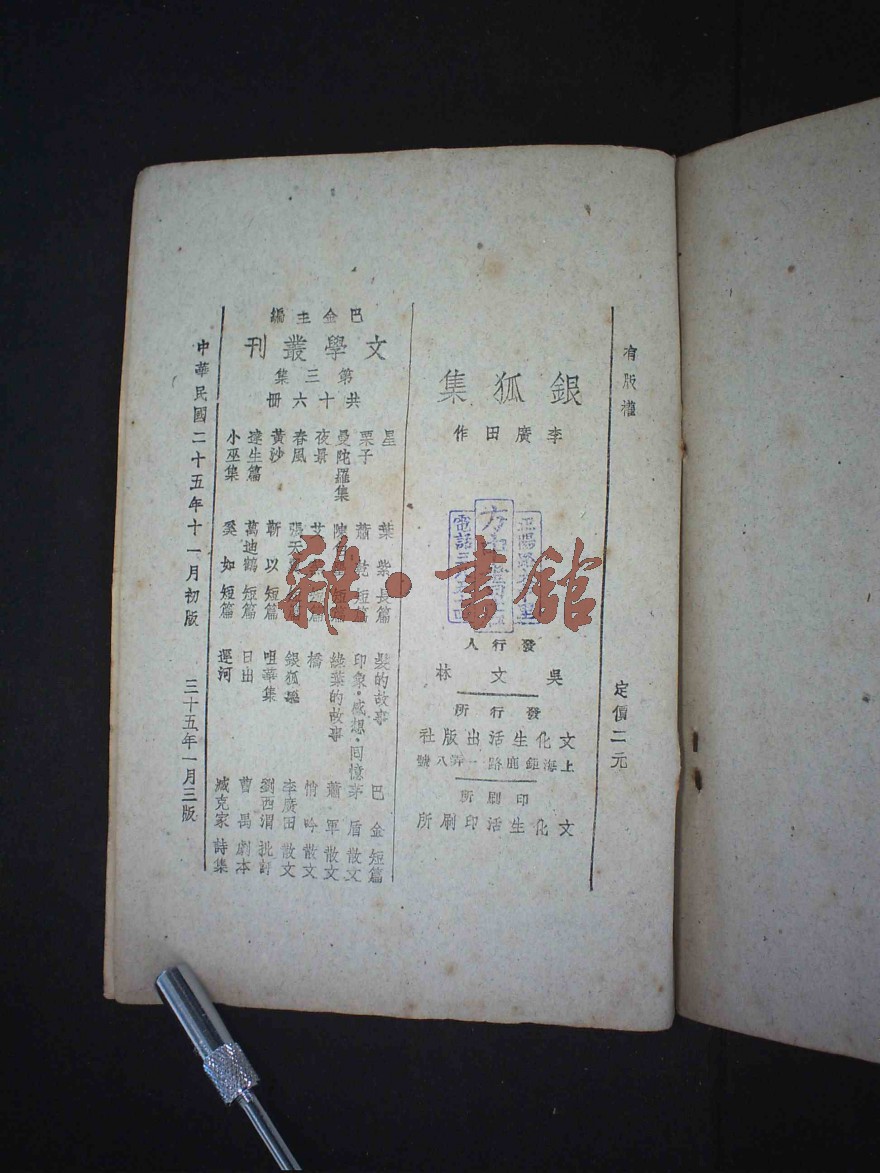 有版權
定價二元
銀狐集
李廣田作
發行人
吳文林
發行所
文化生活出版社
上海鉅鹿路一弄八號
印刷所
文化生活印刷所
巴金主編
文學叢刊
第三集
共十六冊
星 葉紫 長篇
栗子 蕭乾 短篇
曼陀羅集 短篇
夜景 艾蕪 短篇
春風 張天翼 短篇
黃沙 靳以 短篇
達生篇 萬迪鶴 短篇
小巫集 奚如 短篇
髮的故事 巴金 短篇
印象·感想·回憶 茅盾 散文
綠葉的故事 蕭軍 散文
橋 悄吟 散文
銀狐集 李廣田 散文
咀華集 劉西渭 批評
日出 曹禺 劇本
運河 臧克家 詩集
中華民國二十五年十一月初版
三十五年一月三版
雜·書館